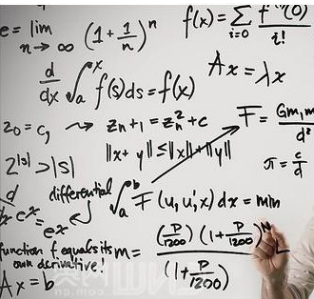 e = lim n→∞ (1 + 1/n)^n
f(x) = Σ i=0 f^i(0) / i!
d/dx ∫_a^x f(s)ds = f(x)
Ax = λx
z₀ = c, ⇝ z_{n+1} = z_n² + c
F = Gm₁m / d²
||x + y|| ≤ ||x|| + ||y||
2^|s| > |s|
π = c/d
differential
∫_a^b F(u, u', x) dx = min
e^x = e^x
function f equals its
own derivative!
m = (P/1200) (1 + P/1200)^N / (1 + P/1200)
Ax = b